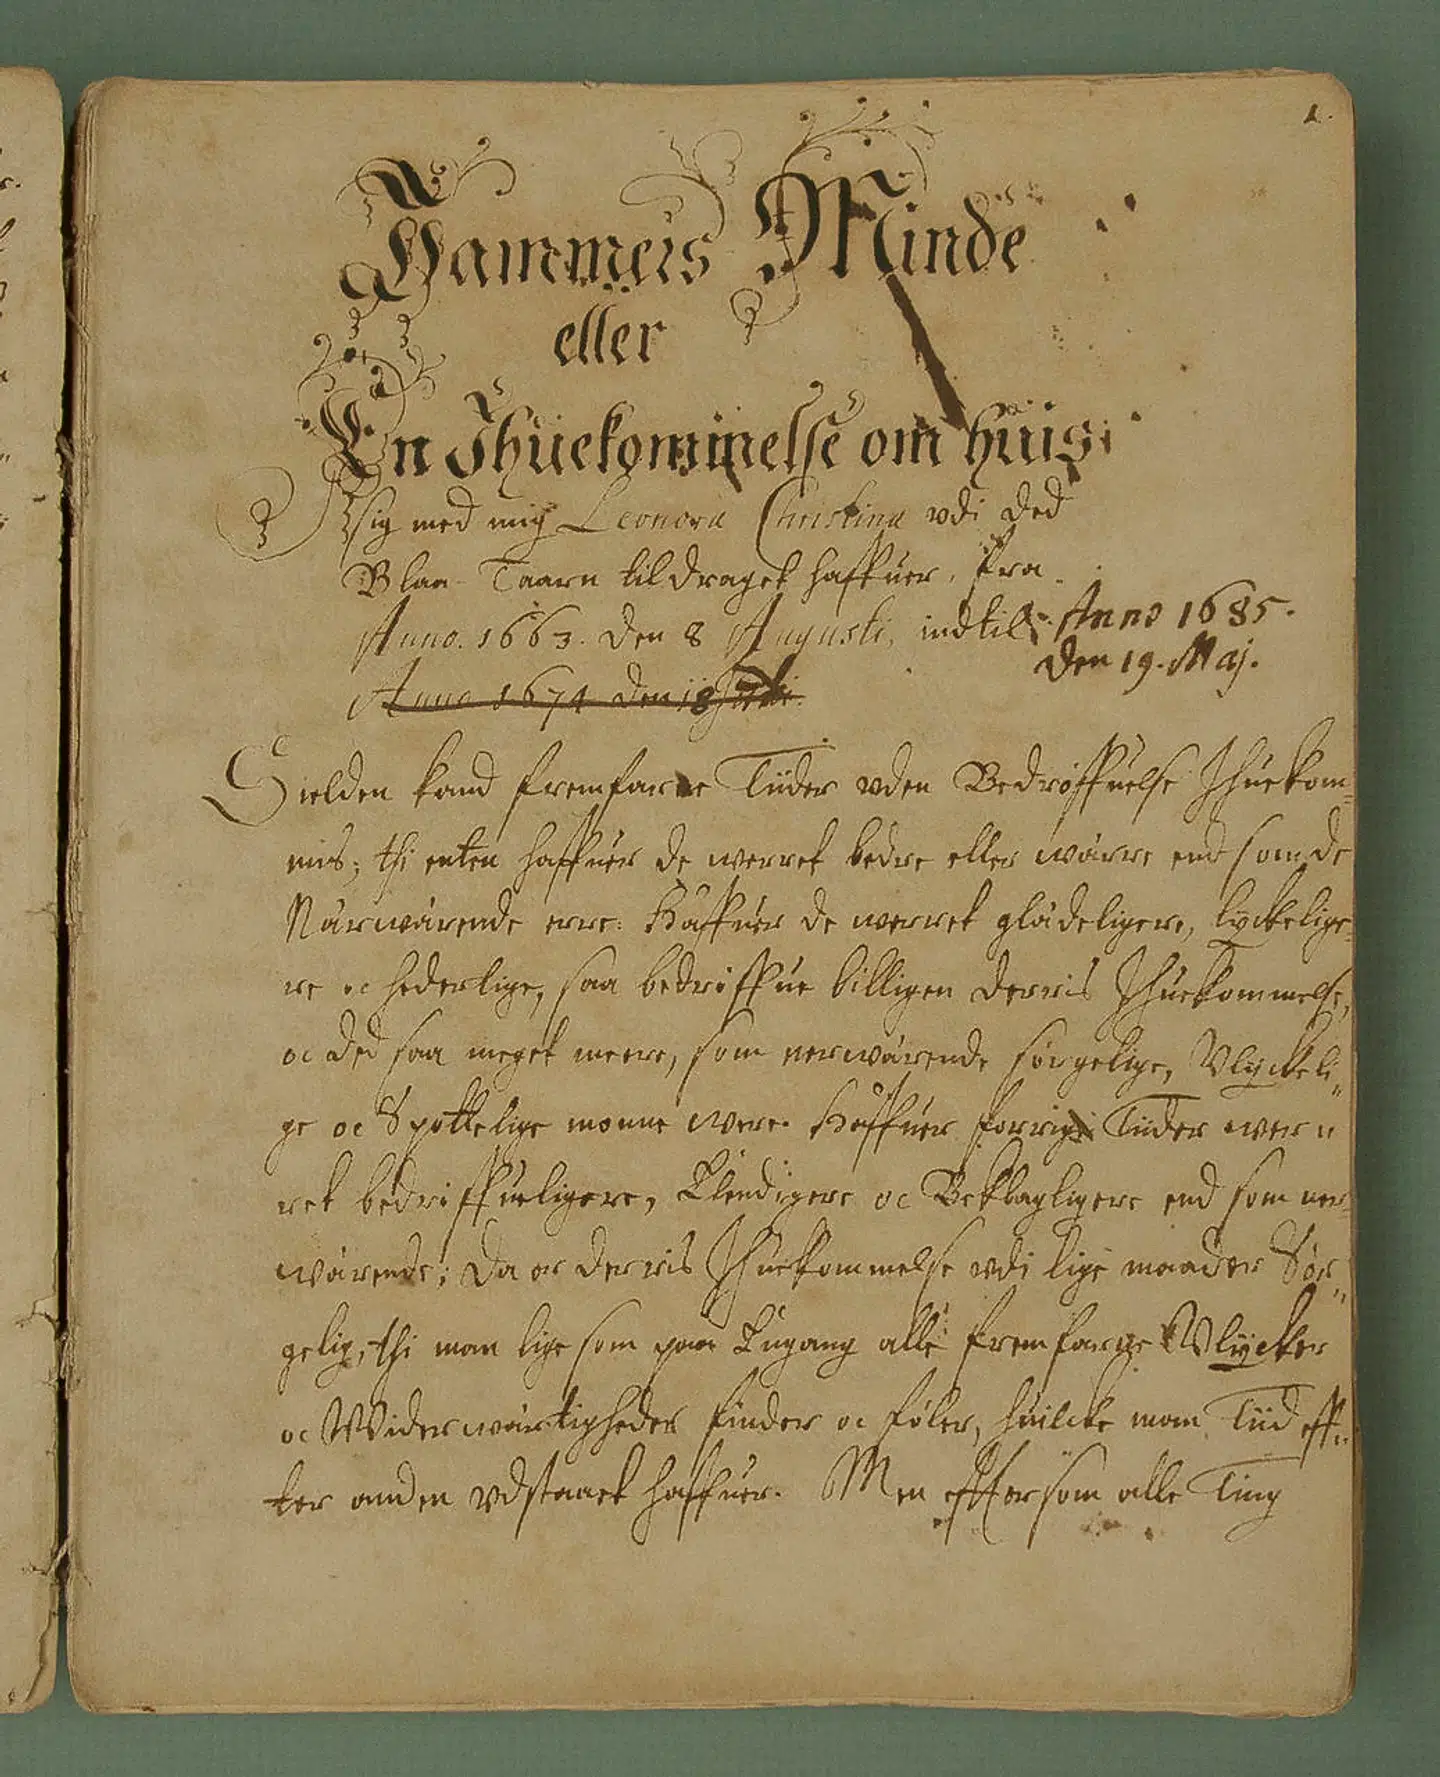 1.
Jammers Minde
eller
En Ihuekommelse om huis
sig med mig Leonora Christina vdi Ded
Blaa-Taarn tildraget haffuer, fra
Anno. 1663. Den 8 Augusti, indtil Anno 1685.
Den 19. Maj.
Anno 1674 den 18
Sielden kand fremfarne Tiider vden Bedrøffuelse Ihuekom-
mis; thi enten haffuer de werret bedre eller wärre end som de
Närwärende erre: Haffuer de werret glädeligere, lyckelige-
re oc hederlige, saa bedrøffue billigen derris Ihuekommelse,
oc Ded saa meget meere, som nerwärende sörgelige, Vlyckeli"
ge oc Spottelige monne were. Haffuer forrige Tiider wer"
ret bedrøffueligere, Elendigere oc Beklagligere end som ner-
wärende; Da er derris Ihuekommelse vdi lige maader Sør"
gelig, thi man lige som paa Engang alle fremfarne Vlycker
oc Widerwärtigheder finder oc føler, huilcke man Tiid eff"
ter anden vdstaaet haffuer. Men effterson alle Ting